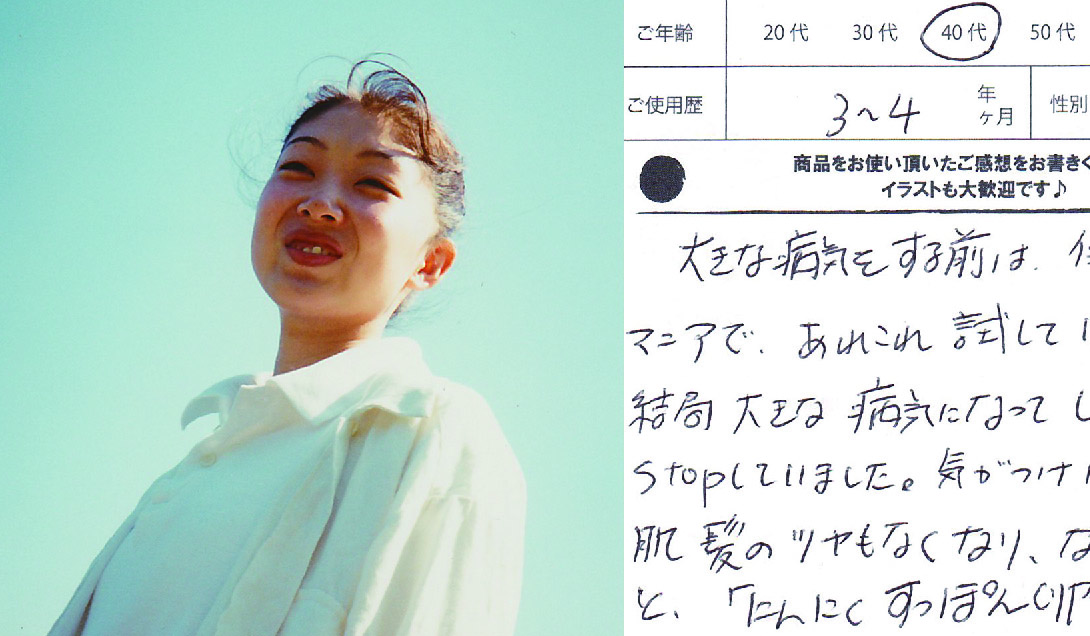 ご年齢 20代 30代 40代 50代
ご使用歴 3~4 年 ヶ月 性別
商品をお使い頂いたご感想をお書きく
イラストも大歓迎です♪
大きな病気をする前は、
マニアで、あれこれ試してい
結局大きな病気になってし
stopしていました。気がつけ
肌髪のツヤもなくなり、な
と、「にんにくすっぽん